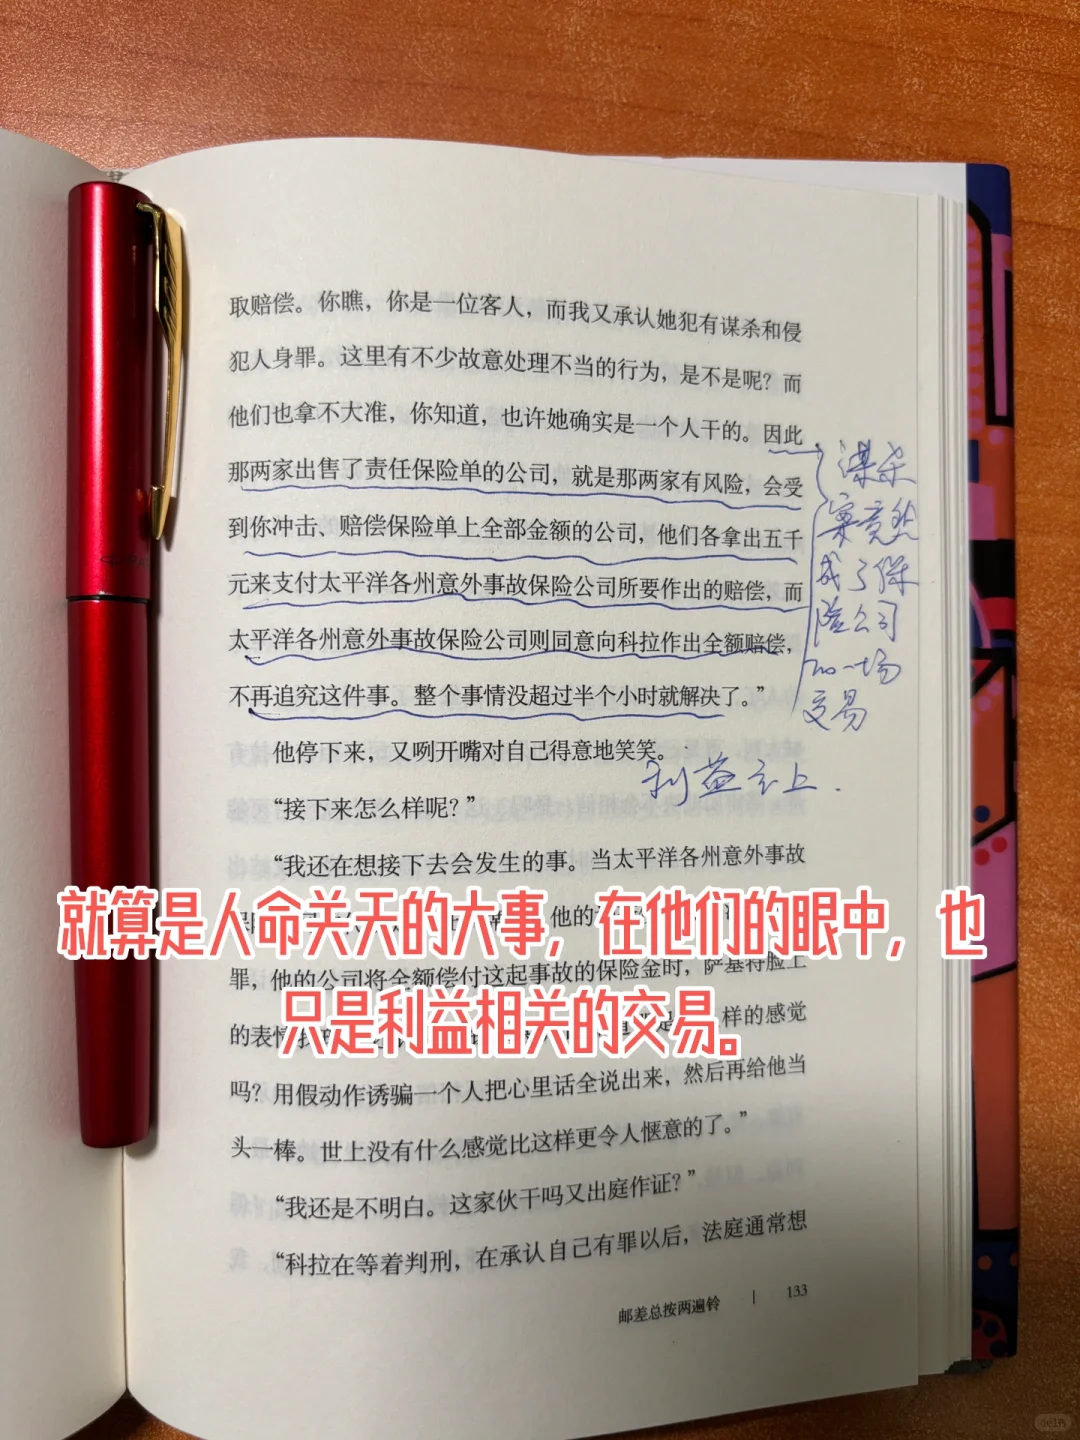 取赔偿。你瞧，你是一位客人，而我又承认她犯有谋杀和侵
犯人身罪。这里有不少故意处理不当的行为，是不是呢？而
他们也拿不大准，你知道，也许她确实是一个人干的。因此
那两家出售了责任保险单的公司，就是那两家有风险，会受
到你冲击、赔偿保险单上全部金额的公司，他们各拿出五千
元来支付太平洋各州意外事故保险公司所要作出的赔偿，而
太平洋各州意外事故保险公司则同意向科拉作出全额赔偿，
不再追究这件事。整个事情没超过半个小时就解决了。”
谋杀
案竟然
成了保
险公司
的一场
交易
他停下来，又咧开嘴对自己得意地笑笑。
利益至上.
“接下来怎么样呢？”
“我还在想接下去会发生的事。当太平洋各州意外事故
就算是人命关天的大事，在他们的眼中，也
只是利益相关的交易。
他的
罪，他的公司将全额偿付这起事故的保险金时，萨基特脸上
的表情 样的感觉
吗？用假动作诱骗一个人把心里话全说出来，然后再给他当
头一棒。世上没有什么感觉比这样更令人惬意的了。”
“我还是不明白。这家伙干吗又出庭作证？”
“科拉在等着判刑，在承认自己有罪以后，法庭通常想
邮差总按两遍铃 | 133